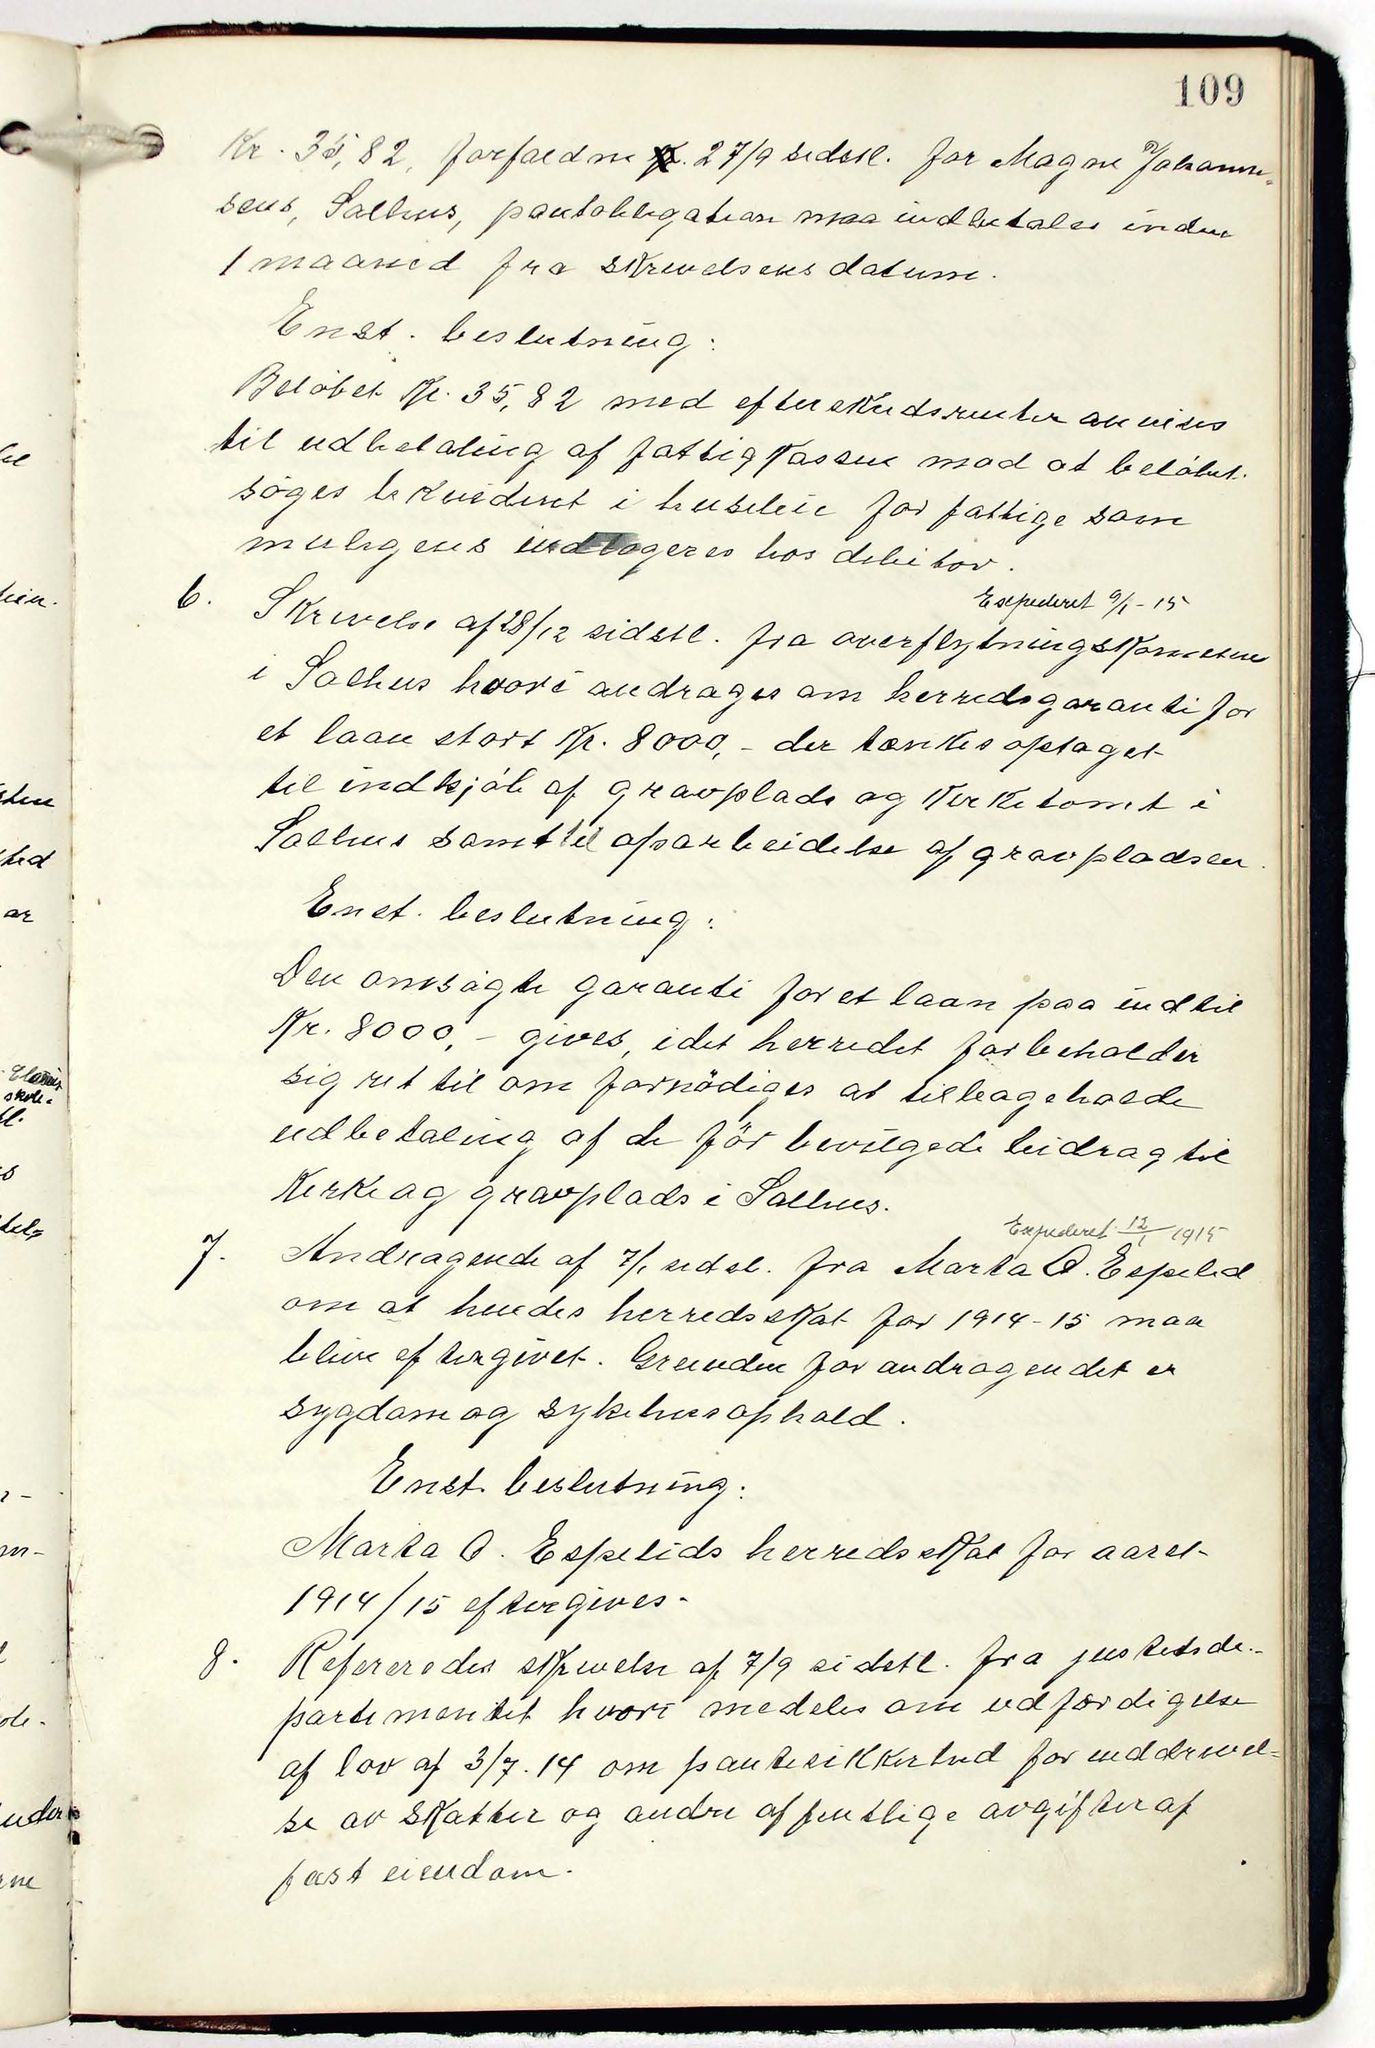 109
Kr. 35,82, forfaldne 27/9 sidstl. for Magne Johanne-
sens, Salhus, pantobligation maa indbetales inden
1 maaned fra skrivelsens datum.
Enst. beslutning:
Beløbet Kr. 35,82 med efterskudsrenter anvises
til udbetaling af fattigkassen mod at beløbet
søges likvideret i husleie for fattige som
muligens indlogeres hos debitor.
Expederet 9/1-15
6. Skrivelse af 28/12 sidstl. fra overflytningskomiteen
i Salhus hvori andrages om herredsgaranti for
et laan stort Kr. 8000,- der tænkes optaget
til indkjøb af gravplads og kirketomt i
Salhus samt til oparbeidelse af gravpladsen.
Enst. beslutning:
Den ansøgte garanti for et laan paa indtil
Kr. 8000,- gives, idet herredet forbeholder
sig ret til om fornødiges at tilbageholde
udbetaling af de før bevilgede bidrag til
kirke og gravplads i Salhus.
Expederet 12/1 1915
7. Andragende af 7/1 sidstl. fra Marta O. Espelid
om at hendes herredsskat for 1914-15 maa
blive eftergivet. Grunden for andragendet er
sygdom og sykehusophold.
Enst. beslutning:
Marta O. Espelids herredsskat for aaret
1914/15 eftergives.
8. Refereredes skrivelse af 7/9 sidstl. fra justitsde-
partementet hvori meddeles om udfærdigelse
af lov af 3/7.14 om pantesikkerhed for inddrivel-
se av skatter og andre offentlige avgifter af
fast eiendom.